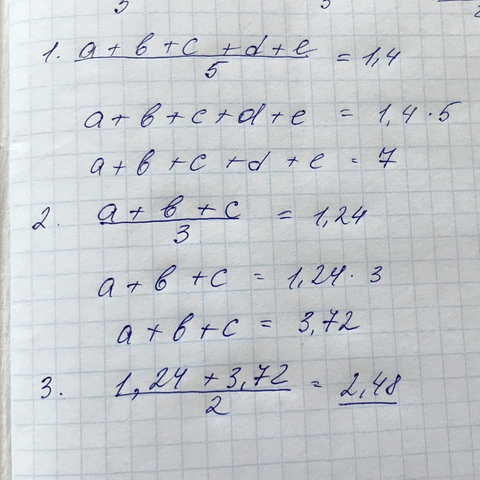 5 5 2
1. (a + b + c + d + e)/5 = 1,4
a + b + c + d + e = 1,4 · 5
a + b + c + d + e = 7
2. (a + b + c)/3 = 1,24
a + b + c = 1,24 · 3
a + b + c = 3,72
3. (1,24 + 3,72)/2 = 2,48